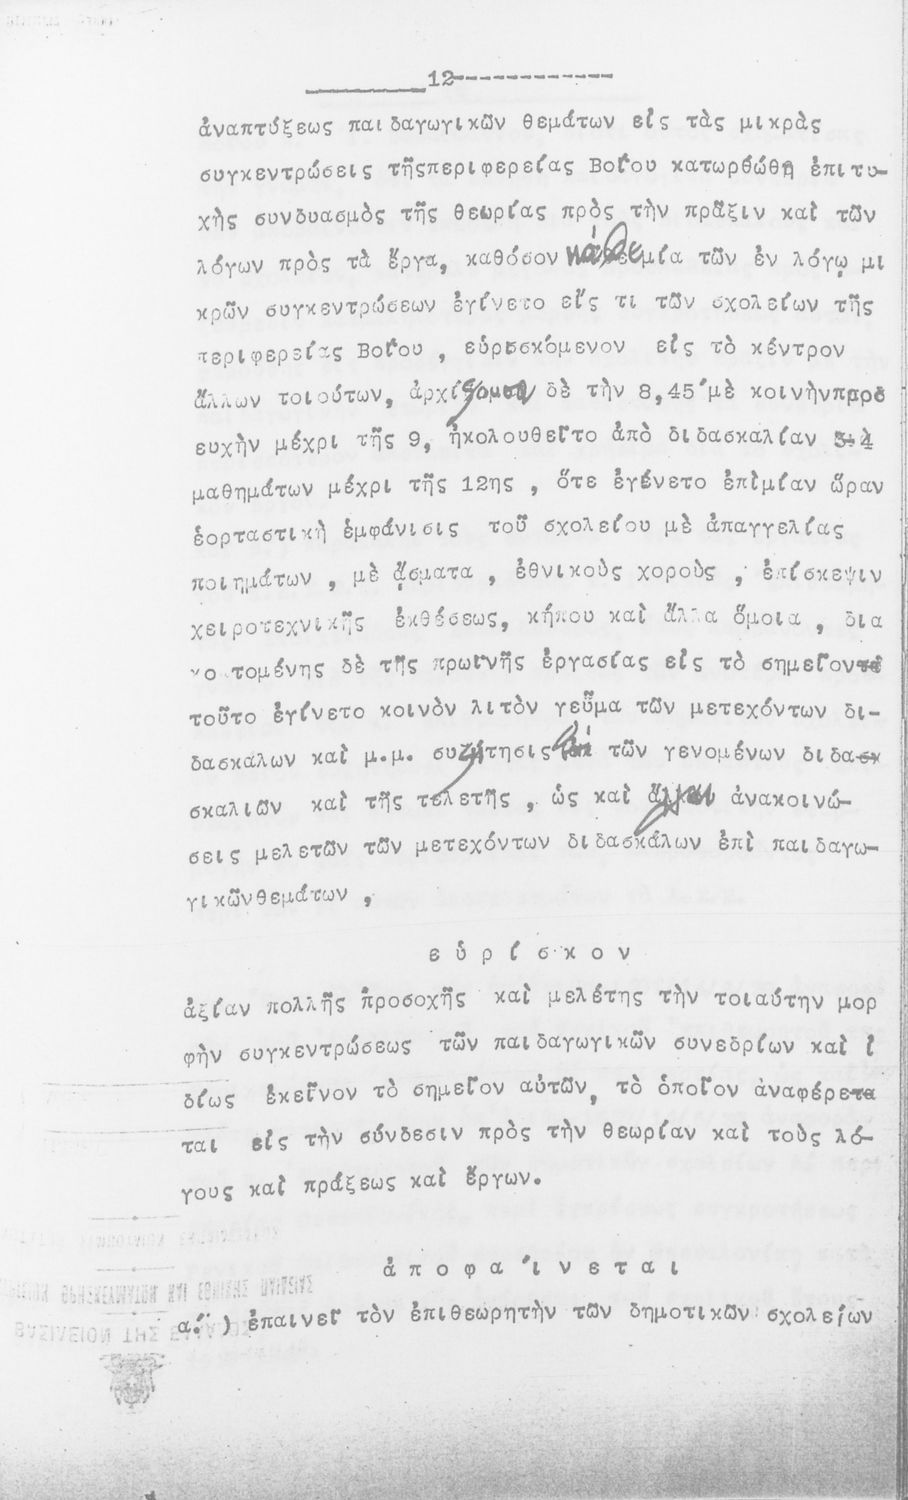 12
ἀναπτύξεως παιδαγωγικῶν θεμάτων εἰς τὰς μικρὰς
συγκεντρώσεις τῆςπεριφερείας Βοΐου κατωρθώθη ἐπιτυ-
χὴς συνδυασμὸς τῆς θεωρίας πρὸς τὴν πρᾶξιν καὶ τῶν
λόγων πρὸς τὰ ἔργα, καθόσον κάθε μία τῶν ἐν λόγῳ μι
κρῶν συγκεντρώσεων ἐγίνετο εἴς τι τῶν σχολείων τῆς
περιφερείας Βοΐου , εὑρισκόμενον εἰς τὸ κέντρον
ἄλλων τοιούτων, δὲ τὴν 8,45΄μὲ κοινὴνπροσ
ευχὴν μέχρι τῆς 9, ἠκολουθεῖτο ἀπὸ διδασκαλίαν 3-4
μαθημάτων μέχρι τῆς 12ης , ὅτε ἐγένετο ἐπὶμίαν ὥραν
ἑορταστικὴ ἐμφάνισις τοῦ σχολείου μὲ ἀπαγγελίας
ποιημάτων , μὲ ᾄσματα , ἐθνικοὺς χοροὺς , ἐπίσκεψιν
χειροτεχνικῆς ἐκθέσεως, κήπου καὶ ἄλλα ὅμοια , δια
κοπτομένης δὲ τῆς πρωινῆς ἐργασίας εἰς τὸ σημεῖον
τοῦτο ἐγίνετο κοινὸν λιτὸν γεῦμα τῶν μετεχόντων δι-
δασκάλων καὶ μ.μ. συζήτησις ἐπί τῶν γενομένων διδα
σκαλιῶν καὶ τῆς τελετῆς , ὡς καὶ ἄλλαι ἀνακοινώ-
σεις μελετῶν τῶν μετεχόντων διδασκάλων ἐπὶ παιδαγω-
γικῶνθεμάτων ,
εὑρίσκον
ἀξίαν πολλῆς προσοχῆς καὶ μελέτης τὴν τοιαύτην μορ
φὴν συγκεντρώσεως τῶν παιδαγωγικῶν συνεδρίων καὶ ἰ
δίως ἐκεῖνον τὸ σημεῖον αὐτῶν, τὸ ὁποῖον ἀναφέρε
ται εἰς τὴν σύνδεσιν πρὸς τὴν θεωρίαν καὶ τοὺς λό-
γους καὶ πράξεως καὶ ἔργων.
ἀποφα ΄ινεται
α.΄) ἐπαινεῖ τὸν ἐπιθεωρητὴν τῶν δημοτικῶν σχολείων